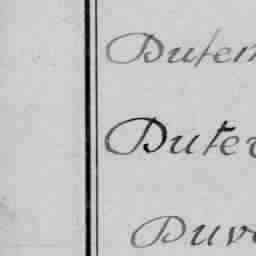 Dutem
Duter
Duv